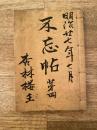 明治廿七年一月
不忘帖 第四
杏林樵主